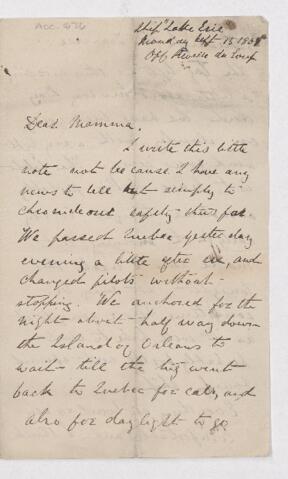 ACC. 476
Ship Lake Erie
Monday Sept 15 1
Off Rivière du Loup
Dear Mamma,
I write this little
note not because I have any
news to tell but simply to
chronicle our safety thus far
We passed Quebec yesterday
evening a little after six, and
changed pilots without
stopping. We anchored for the
night about half way down
the Island of Orleans to
wait till the tug went
back to Quebec for coal, and
also for daylight to go